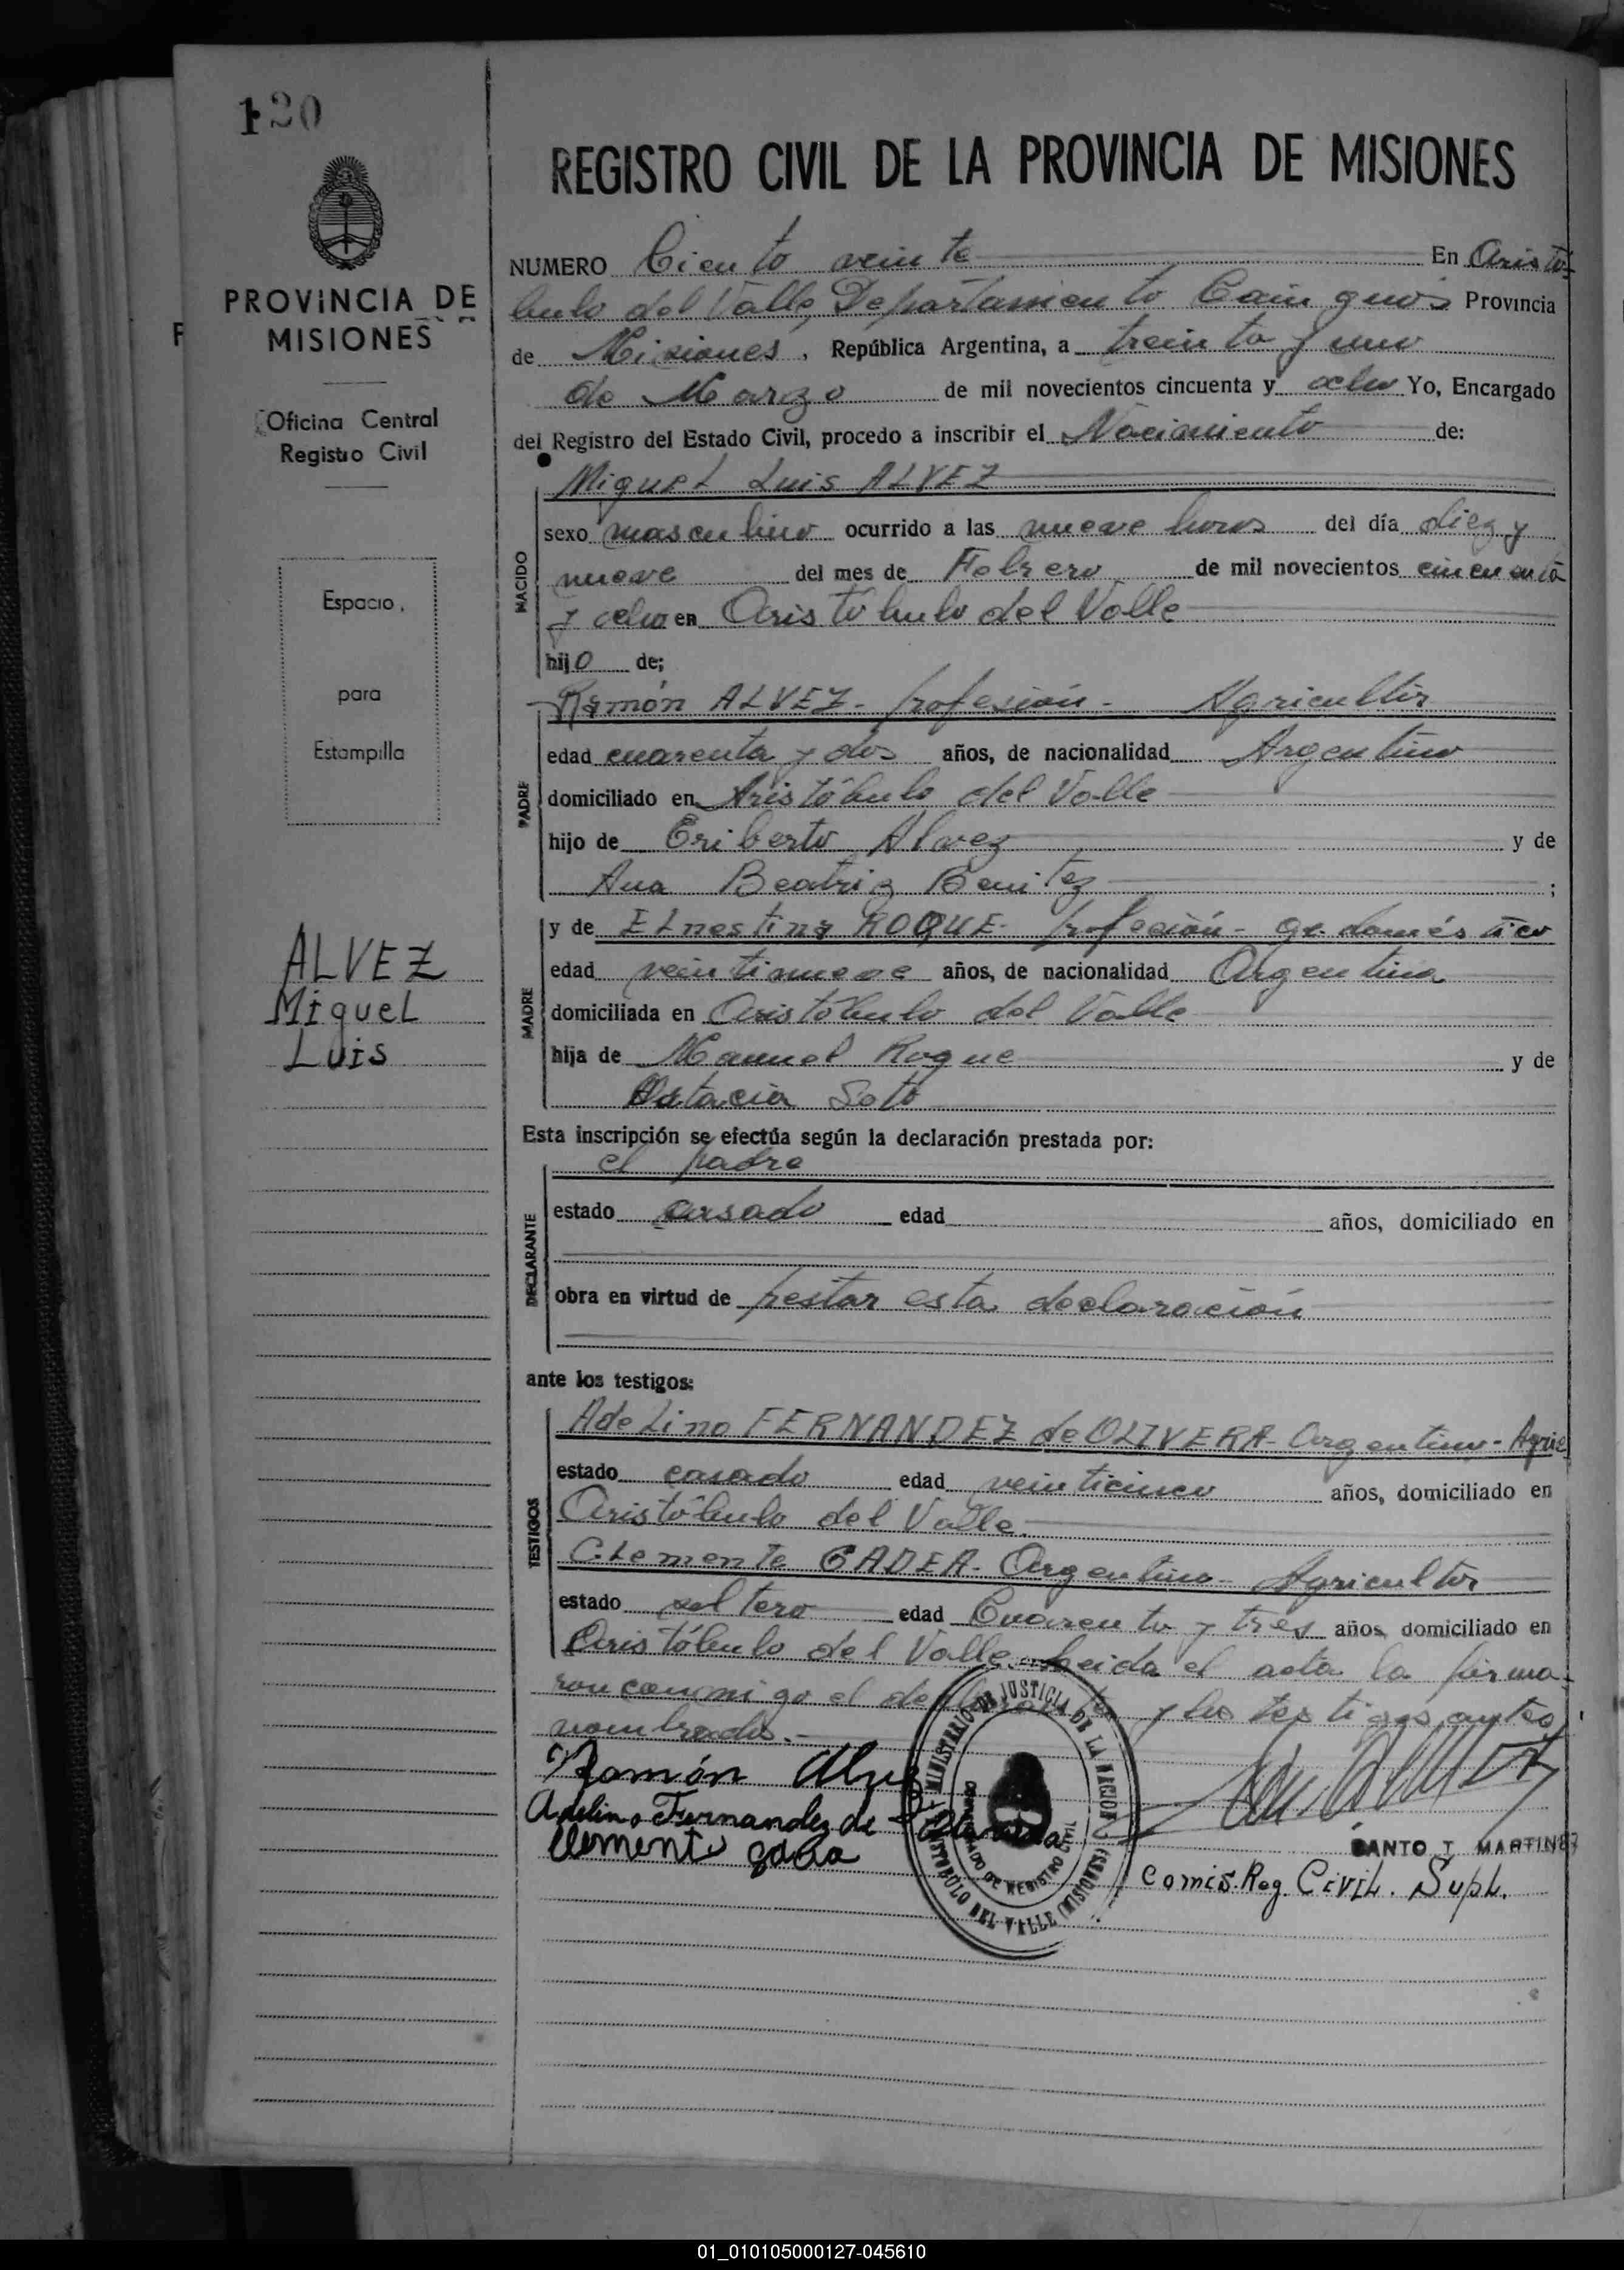 120
PROVINCIA DE
MISIONES
Oficina Central
Registro Civil
Espacio
para
Estampilla
ALVEZ
Miguel
Luis
REGISTRO CIVIL DE LA PROVINCIA DE MISIONES
NUMERO Ciento veinte En Aristó-
bulo del Valle, Departamento Cainguás Provincia
de Misiones, República Argentina, a treinta y uno
de Marzo de mil novecientos cincuenta y ocho Yo, Encargado
del Registro del Estado Civil, procedo a inscribir el Nacimiento de:
Miguel Luis ALVEZ
NACIDO
sexo masculino ocurrido a las nueve horas del día diez y
nueve del mes de Febrero de mil novecientos cincuenta
y ocho en Aristóbulo del Valle
hijo de;
Ramón ALVEZ - profesión - Agricultor
PADRE
edad cuarenta y dos años, de nacionalidad Argentino
domiciliado en Aristóbulo del Valle
hijo de Eriberto Alvez y de
Ana Beatriz Benitez ;
y de Ernestina ROQUE - profesión - q. domésticos
MADRE
edad veintinueve años, de nacionalidad Argentina
domiciliada en Aristóbulo del Valle
hija de Manuel Roque y de
Astacia Soto
Esta inscripción se efectúa según la declaración prestada por:
el padre
DECLARANTE
estado casado edad años, domiciliado en
obra en virtud de prestar esta declaración
ante los testigos:
TESTIGOS
Adelino FERNANDEZ de OLIVERA - Argentino - Agric
estado casado edad veinticinco años, domiciliado en
Aristóbulo del Valle.
Clemente GADEA - Argentino - Agricultor
estado soltero edad Cuarenta y tres años, domiciliado en
Aristóbulo del Valle. Leida el acta la firma-
ron conmigo el declarante y los testigos antes
nombrados.-
Ramón Alvez
Adelino Fernandez de Olivera
Clemente gadea
MINISTERIO DE JUSTICIA DE LA NACION
DE REGISTRO CIVIL
ARISTOBULO DEL VALLE (MISIONES)
SANTO T. MARTINEZ
Comis. Reg. Civil. Supl.
01_010105000127-045610